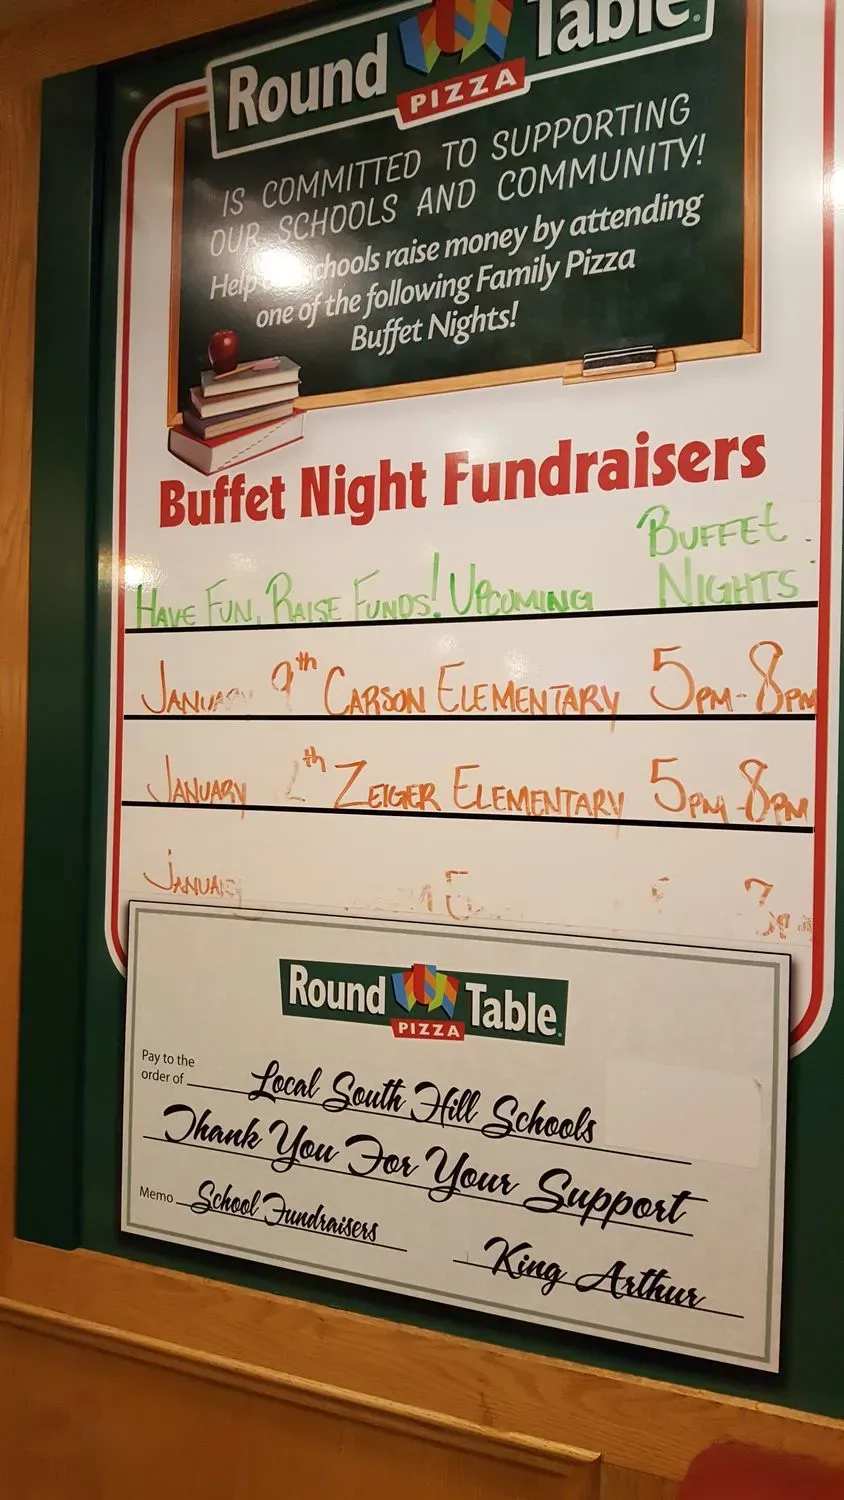 Round Table
PIZZA
IS COMMITTED TO SUPPORTING
OUR SCHOOLS AND COMMUNITY!
Help schools raise money by attending
one of the following Family Pizza
Buffet Nights!
Buffet Night Fundraisers
HAVE FUN, RAISE FUNDS! UPCOMING BUFFET NIGHTS
JANUARY 9th CARSON ELEMENTARY 5PM-8PM
JANUARY th ZEIGER ELEMENTARY 5PM-8PM
JANUARY
Round Table
PIZZA
Pay to the
order of Local South Hill Schools
Thank You For Your Support
Memo School Fundraisers
King Arthur